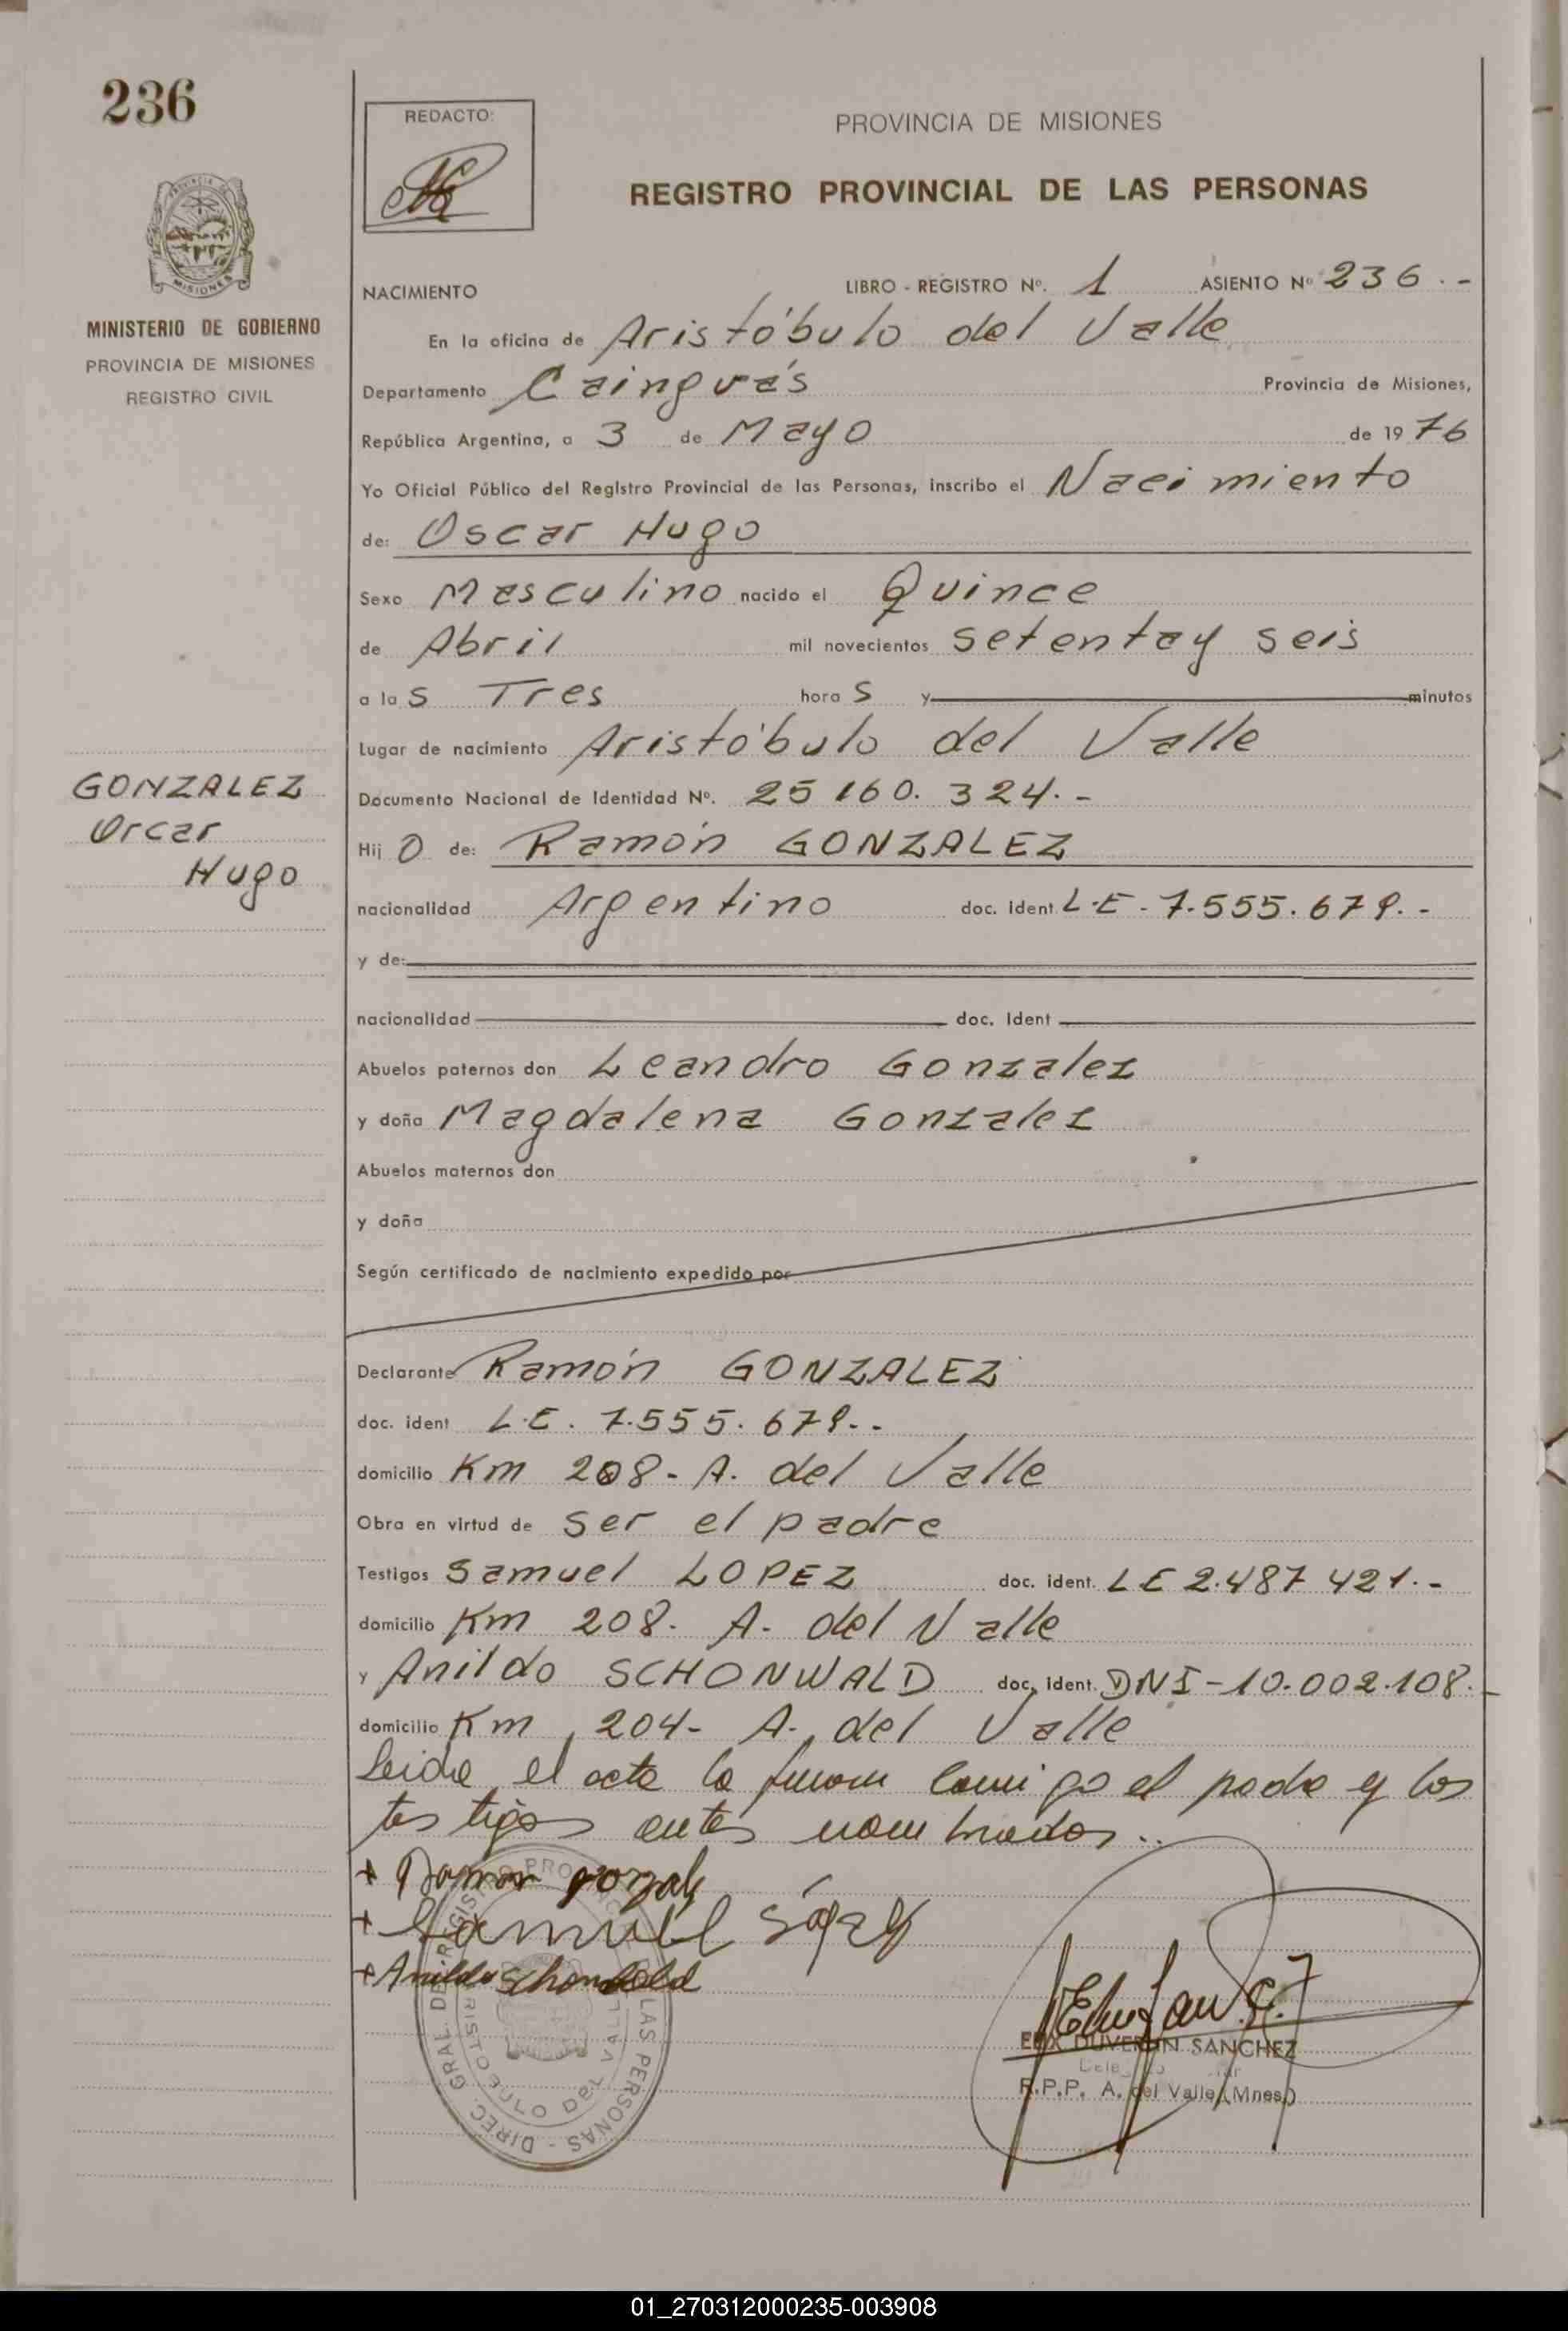 236
REDACTO:
PROVINCIA DE MISIONES
REGISTRO PROVINCIAL DE LAS PERSONAS
MINISTERIO DE GOBIERNO
PROVINCIA DE MISIONES
REGISTRO CIVIL
NACIMIENTO LIBRO - REGISTRO Nº. 1 ASIENTO Nº 236.-
En la oficina de Aristóbulo del Valle
Departamento Cainguás Provincia de Misiones,
República Argentina, a 3 de Mayo de 1976
Yo Oficial Público del Registro Provincial de las Personas, inscribo el Nacimiento
de: Oscar Hugo
Sexo Masculino nacido el Quince
de Abril mil novecientos setentay seis
a las Tres horas y minutos
Lugar de nacimiento Aristóbulo del Valle
GONZALEZ
Oscar
Hugo
Documento Nacional de Identidad Nº. 25 160. 324.-
Hijo de: Ramón GONZALEZ
nacionalidad Argentino doc. ident. L.E - 7.555.679.-
y de:
nacionalidad doc. Ident
Abuelos paternos don Leandro Gonzalez
y doña Magdalena Gonzalez
Abuelos maternos don
y doña
Según certificado de nacimiento expedido por
Declarante Ramón GONZALEZ
doc. ident L.E. 7.555.679.-
domicilio Km 208- A. del Valle
Obra en virtud de ser el padre
Testigos Samuel LOPEZ doc. ident. LE 2.487 421.-
domicilio Km 208- A. del Valle
y Anildo SCHONWALD doc. ident. DNI-10.002.108.-
domicilio Km 204- A. del Valle
Leida el acta la firman conmigo el padre y los
testigos antes nombrados..
+ Ramon
+ Samuel
+ Anildo
DIREC. GRAL. DEL REGISTRO PROV. DE LAS PERSONAS
ARISTOBULO DEL VALLE
DUVERIN SANCHEZ
R.P.P. A. del Valle (Mnes.)
01_270312000235-003908